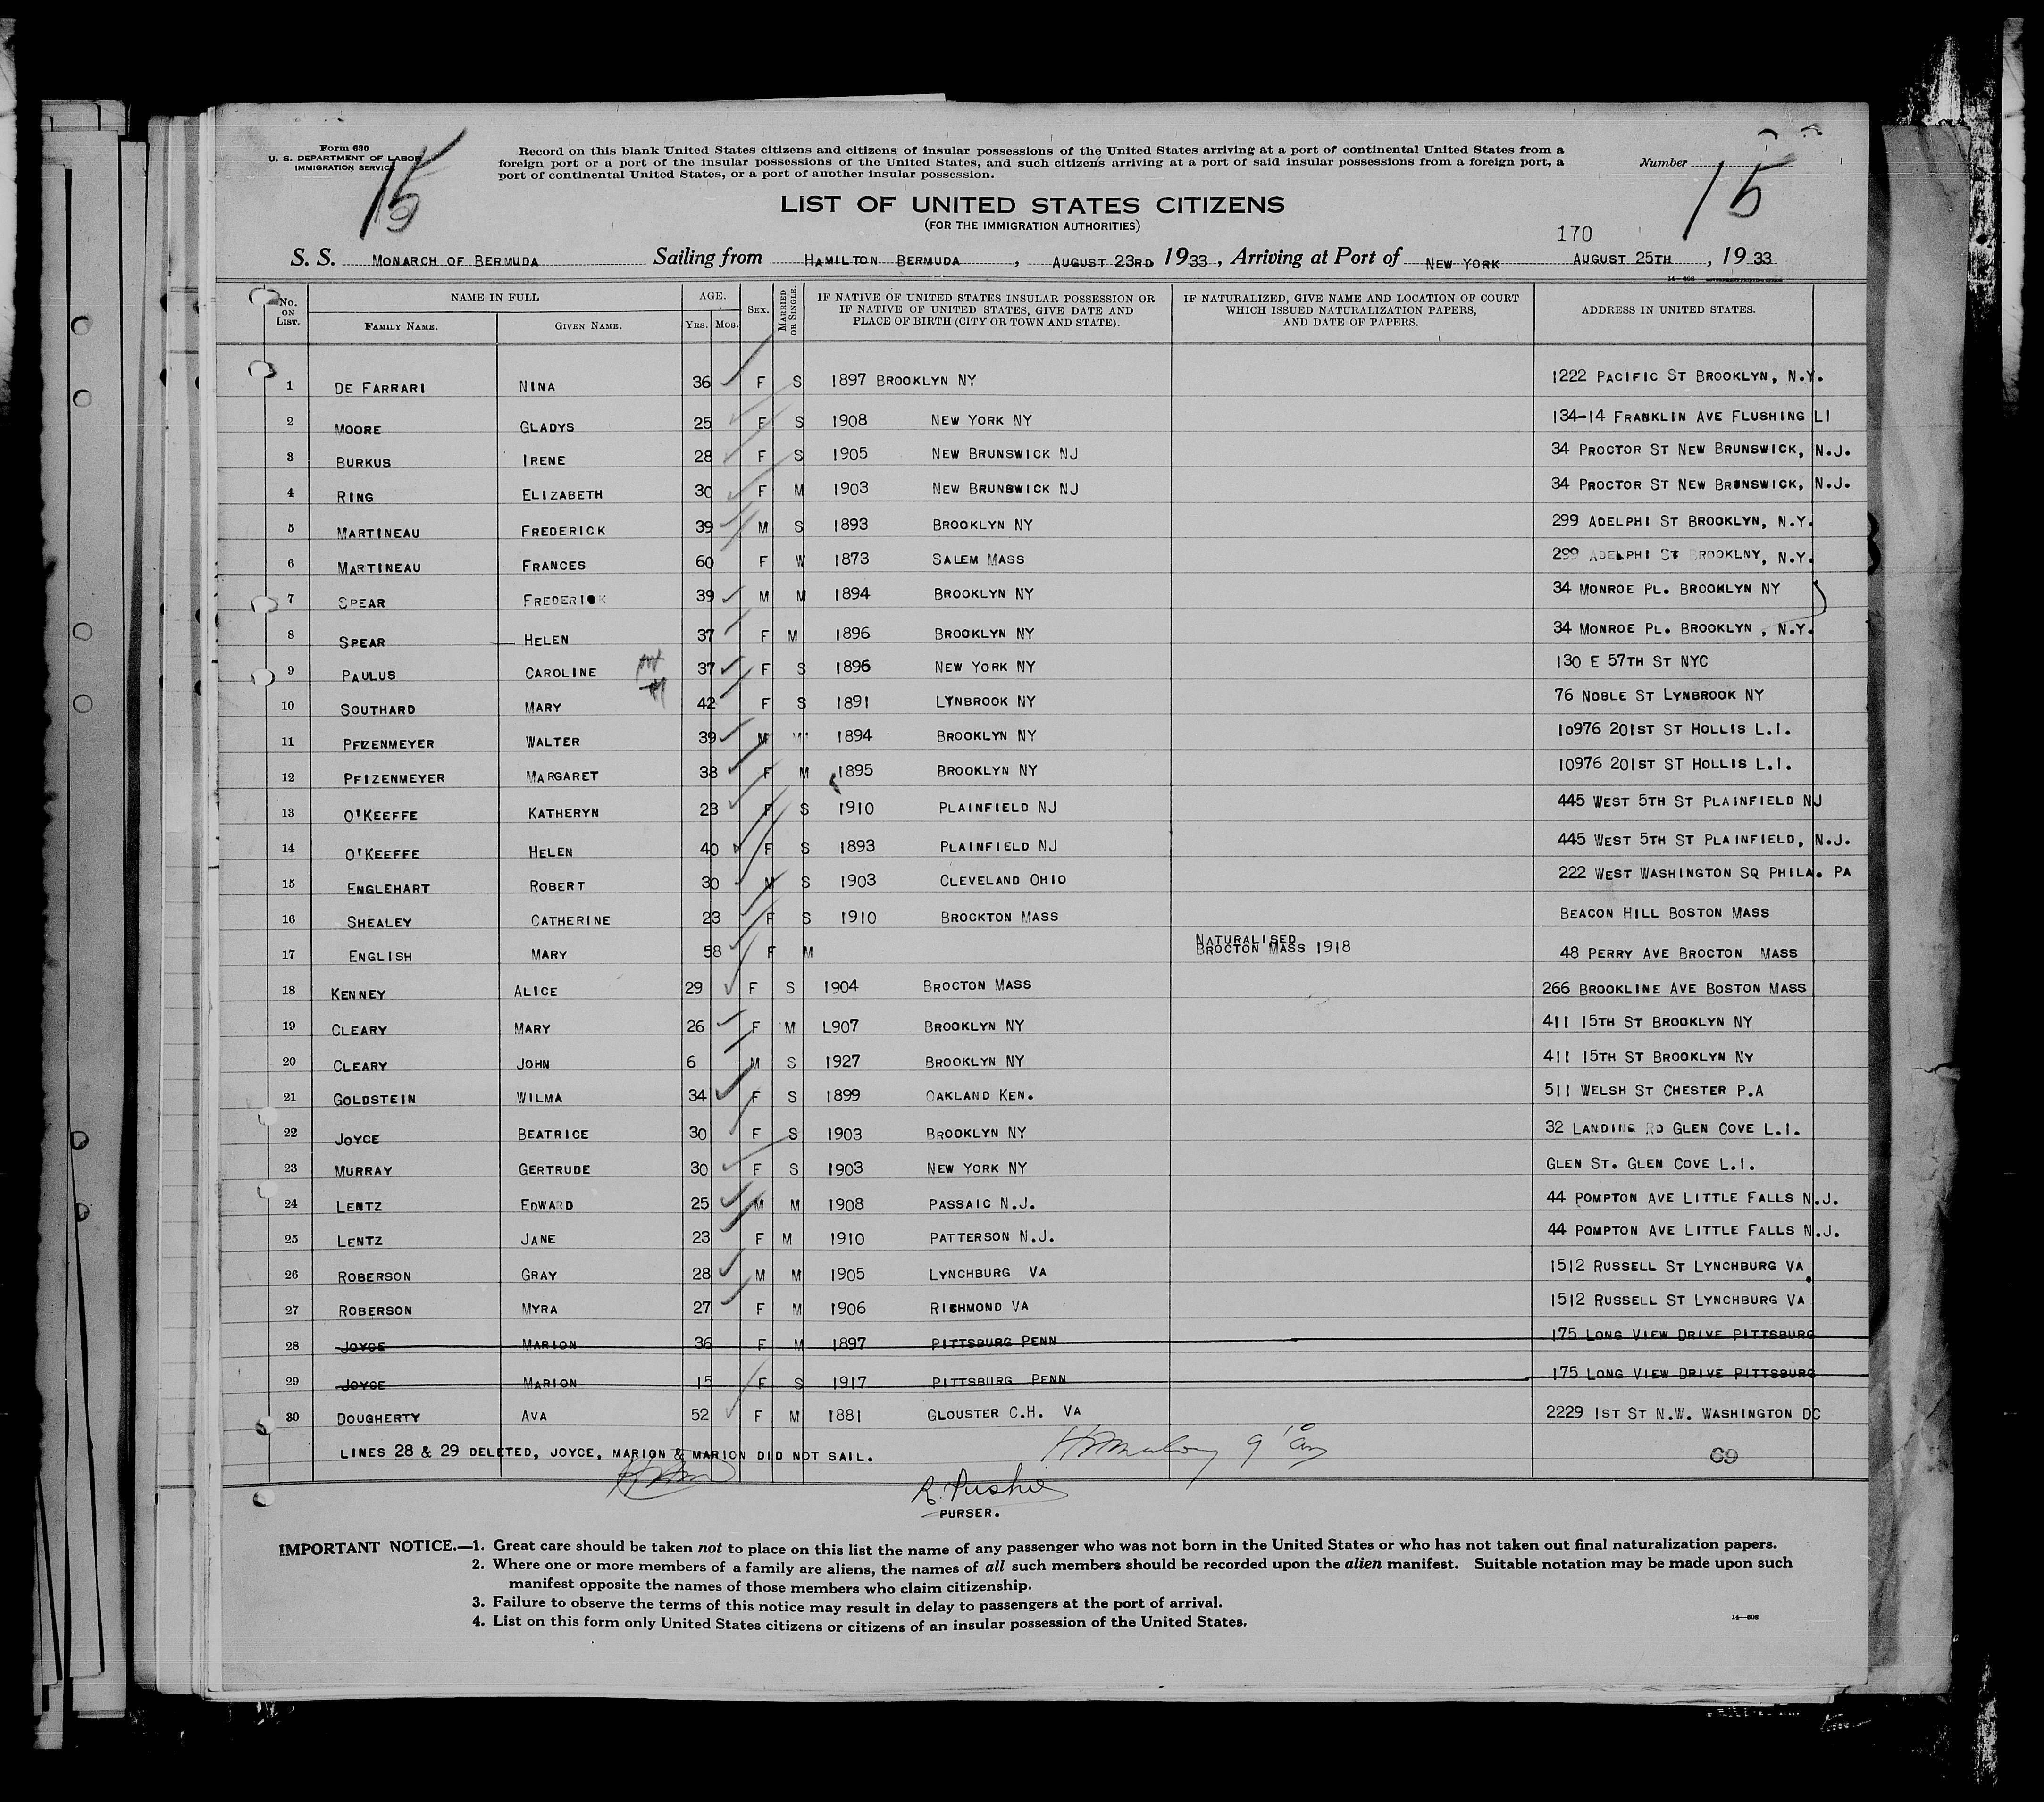 Form 630
U. S. DEPARTMENT OF LABOR
IMMIGRATION SERVICE
15
Record on this blank United States citizens and citizens of insular possessions of the United States arriving at a port of continental United States from a
foreign port or a port of the insular possessions of the United States, and such citizens arriving at a port of said insular possessions from a foreign port, a
port of continental United States, or a port of another insular possession.
Number 15
LIST OF UNITED STATES CITIZENS
(FOR THE IMMIGRATION AUTHORITIES)
170
S. S. MONARCH OF BERMUDA Sailing from HAMILTON BERMUDA, AUGUST 23RD 1933, Arriving at Port of NEW YORK AUGUST 25TH, 1933
14—608 GOVERNMENT PRINTING OFFICE
No. ON LIST. NAME IN FULL FAMILY NAME. GIVEN NAME. AGE. YRS. MOS. SEX. MARRIED OR SINGLE. IF NATIVE OF UNITED STATES INSULAR POSSESSION OR IF NATIVE OF UNITED STATES, GIVE DATE AND PLACE OF BIRTH (CITY OR TOWN AND STATE). IF NATURALIZED, GIVE NAME AND LOCATION OF COURT WHICH ISSUED NATURALIZATION PAPERS, AND DATE OF PAPERS. ADDRESS IN UNITED STATES.
1 DE FARRARI NINA 36 F S 1897 BROOKLYN NY 1222 PACIFIC ST BROOKLYN, N.Y.
2 MOORE GLADYS 25 F S 1908 NEW YORK NY 134-14 FRANKLIN AVE FLUSHING LI
3 BURKUS IRENE 28 F S 1905 NEW BRUNSWICK NJ 34 PROCTOR ST NEW BRUNSWICK, N.J.
4 RING ELIZABETH 30 F M 1903 NEW BRUNSWICK NJ 34 PROCTOR ST NEW BRUNSWICK, N.J.
5 MARTINEAU FREDERICK 39 M S 1893 BROOKLYN NY 299 ADELPHI ST BROOKLYN, N.Y.
6 MARTINEAU FRANCES 60 F W 1873 SALEM MASS 299 ADELPHI ST BROOKLNY, N.Y.
7 SPEAR FREDERICK 39 M M 1894 BROOKLYN NY 34 MONROE PL. BROOKLYN NY
8 SPEAR HELEN 37 F M 1896 BROOKLYN NY 34 MONROE PL. BROOKLYN , N.Y.
9 PAULUS CAROLINE 37 F S 1896 NEW YORK NY 130 E 57TH ST NYC
10 SOUTHARD MARY 42 F S 1891 LYNBROOK NY 76 NOBLE ST LYNBROOK NY
11 PFIZENMEYER WALTER 39 M 1894 BROOKLYN NY 10976 201ST ST HOLLIS L.I.
12 PFIZENMEYER MARGARET 38 F M 1895 BROOKLYN NY 10976 201ST ST HOLLIS L.I.
13 O'KEEFFE KATHERYN 23 F S 1910 PLAINFIELD NJ 445 WEST 5TH ST PLAINFIELD NJ
14 O'KEEFFE HELEN 40 F S 1893 PLAINFIELD NJ 445 WEST 5TH ST PLAINFIELD, N.J.
15 ENGLEHART ROBERT 30 M S 1903 CLEVELAND OHIO 222 WEST WASHINGTON SQ PHILA. PA
16 SHEALEY CATHERINE 23 F S 1910 BROCKTON MASS BEACON HILL BOSTON MASS
17 ENGLISH MARY 58 F M NATURALISED BROCTON MASS 1918 48 PERRY AVE BROCTON MASS
18 KENNEY ALICE 29 F S 1904 BROCTON MASS 266 BROOKLINE AVE BOSTON MASS
19 CLEARY MARY 26 F M L907 BROOKLYN NY 411 15TH ST BROOKLYN NY
20 CLEARY JOHN 6 M S 1927 BROOKLYN NY 411 15TH ST BROOKLYN NY
21 GOLDSTEIN WILMA 34 F S 1899 OAKLAND KEN. 511 WELSH ST CHESTER P.A
22 JOYCE BEATRICE 30 F S 1903 BROOKLYN NY 32 LANDING RD GLEN COVE L.I.
23 MURRAY GERTRUDE 30 F S 1903 NEW YORK NY GLEN ST. GLEN COVE L.I.
24 LENTZ EDWARD 25 M M 1908 PASSAIC N.J. 44 POMPTON AVE LITTLE FALLS N.J.
25 LENTZ JANE 23 F M 1910 PATTERSON N.J. 44 POMPTON AVE LITTLE FALLS N.J.
26 ROBERSON GRAY 28 M M 1905 LYNCHBURG VA 1512 RUSSELL ST LYNCHBURG VA
27 ROBERSON MYRA 27 F M 1906 RICHMOND VA 1512 RUSSELL ST LYNCHBURG VA
28 JOYCE MARION 36 F M 1897 PITTSBURG PENN 175 LONG VIEW DRIVE PITTSBURG
29 JOYCE MARION 15 F S 1917 PITTSBURG PENN 175 LONG VIEW DRIVE PITTSBURG
30 DOUGHERTY AVA 52 F M 1881 GLOUSTER C.H. VA 2229 1ST ST N.W. WASHINGTON DC
LINES 28 & 29 DELETED, JOYCE, MARION & MARION DID NOT SAIL.
PURSER.
IMPORTANT NOTICE.—1. Great care should be taken not to place on this list the name of any passenger who was not born in the United States or who has not taken out final naturalization papers.
2. Where one or more members of a family are aliens, the names of all such members should be recorded upon the alien manifest. Suitable notation may be made upon such
manifest opposite the names of those members who claim citizenship.
3. Failure to observe the terms of this notice may result in delay to passengers at the port of arrival.
4. List on this form only United States citizens or citizens of an insular possession of the United States.
14—608